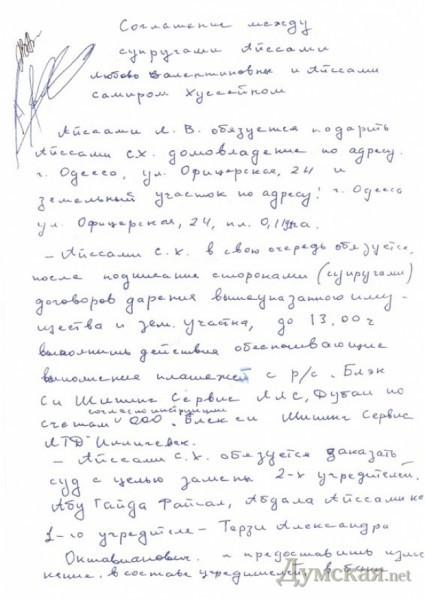 Соглашение между
супругами Айссами
Любовь Валентиновны и Айссами
Самиром Хуссейном
Айссами Л. В. обязуется подарить
Айссами С.Х. домовладение по адресу.
г. Одесса, ул. Офицерская, 24 и
земельный участок по адресу: г. Одесса
ул. Офицерская, 24, пл. 0,11 га.
– Айссами С. Х. в свою очередь обязуется,
после подписание сторонами (супругами)
договоров дарения вышеуказанного иму-
щества и зем. участка, до 13.00 ч
выполнить действия обеспечивающие
выполнение платежей с р/с. Блэк
Си Шипинг Сервис ЛЛС, Дубаи по
согласно инструкции
счетам ООО. Блек си Шипинг Сервис
ЛТД Илличевск.
– Айссами С.Х. обязуется заказать
суд с целью замены 2-х учредителей.
Абу Гайда Файсал, Абдала Айссами на
1-го учредителя – Терзи Александра
Октавианович. и предоставить изме
нение. в составе учредителей в банк
Думская.net